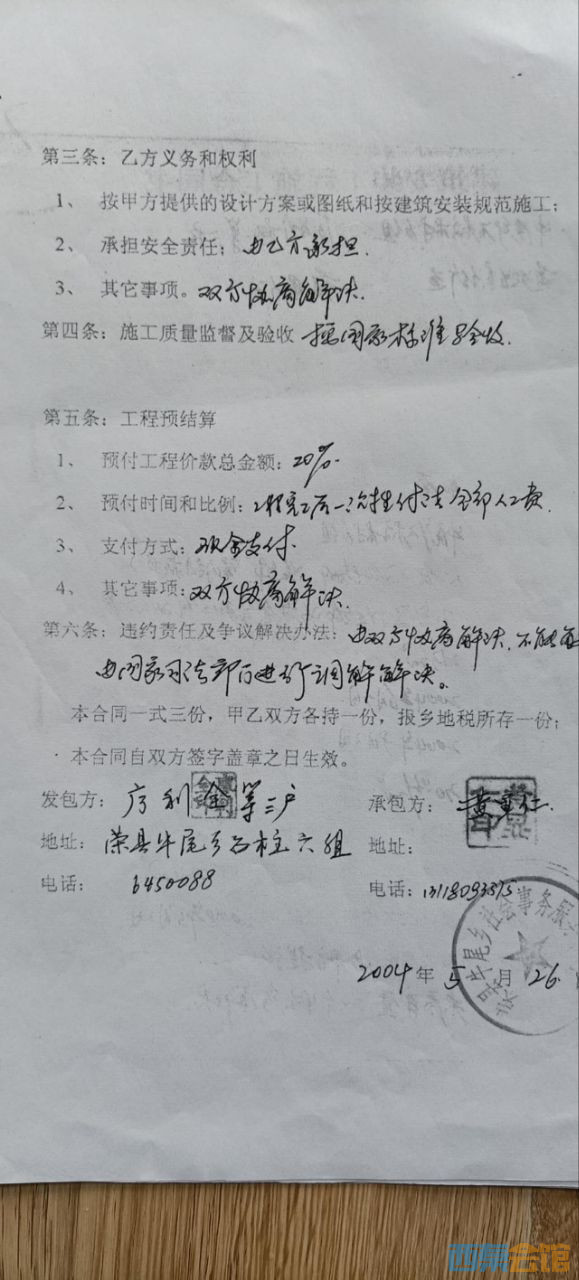 第三条：乙方义务和权利
1、 按甲方提供的设计方案或图纸和按建筑安装规范施工；
2、 承担安全责任；由乙方承担.
3、 其它事项。双方协商解决.
第四条：施工质量监督及验收 按国家标准验收.
第五条：工程预结算
1、 预付工程价款总金额：20%.
2、 预付时间和比例：工程完工后一次性付清全部人工费.
3、 支付方式：现金支付.
4、 其它事项：双方协商解决.
第六条：违约责任及争议解决办法：由双方协商解决.不能
由国家司法部门进行调解解决。
本合同一式三份，甲乙双方各持一份，报乡地税所存一份；
本合同自双方签字盖章之日生效。
发包方： 利金等三户 承包方： 黄
地址： 荣县牛尾乡石柱六组 地址：
电话： 6450088 电话：
牛尾乡社会事务服
2004年5月26
西京会馆